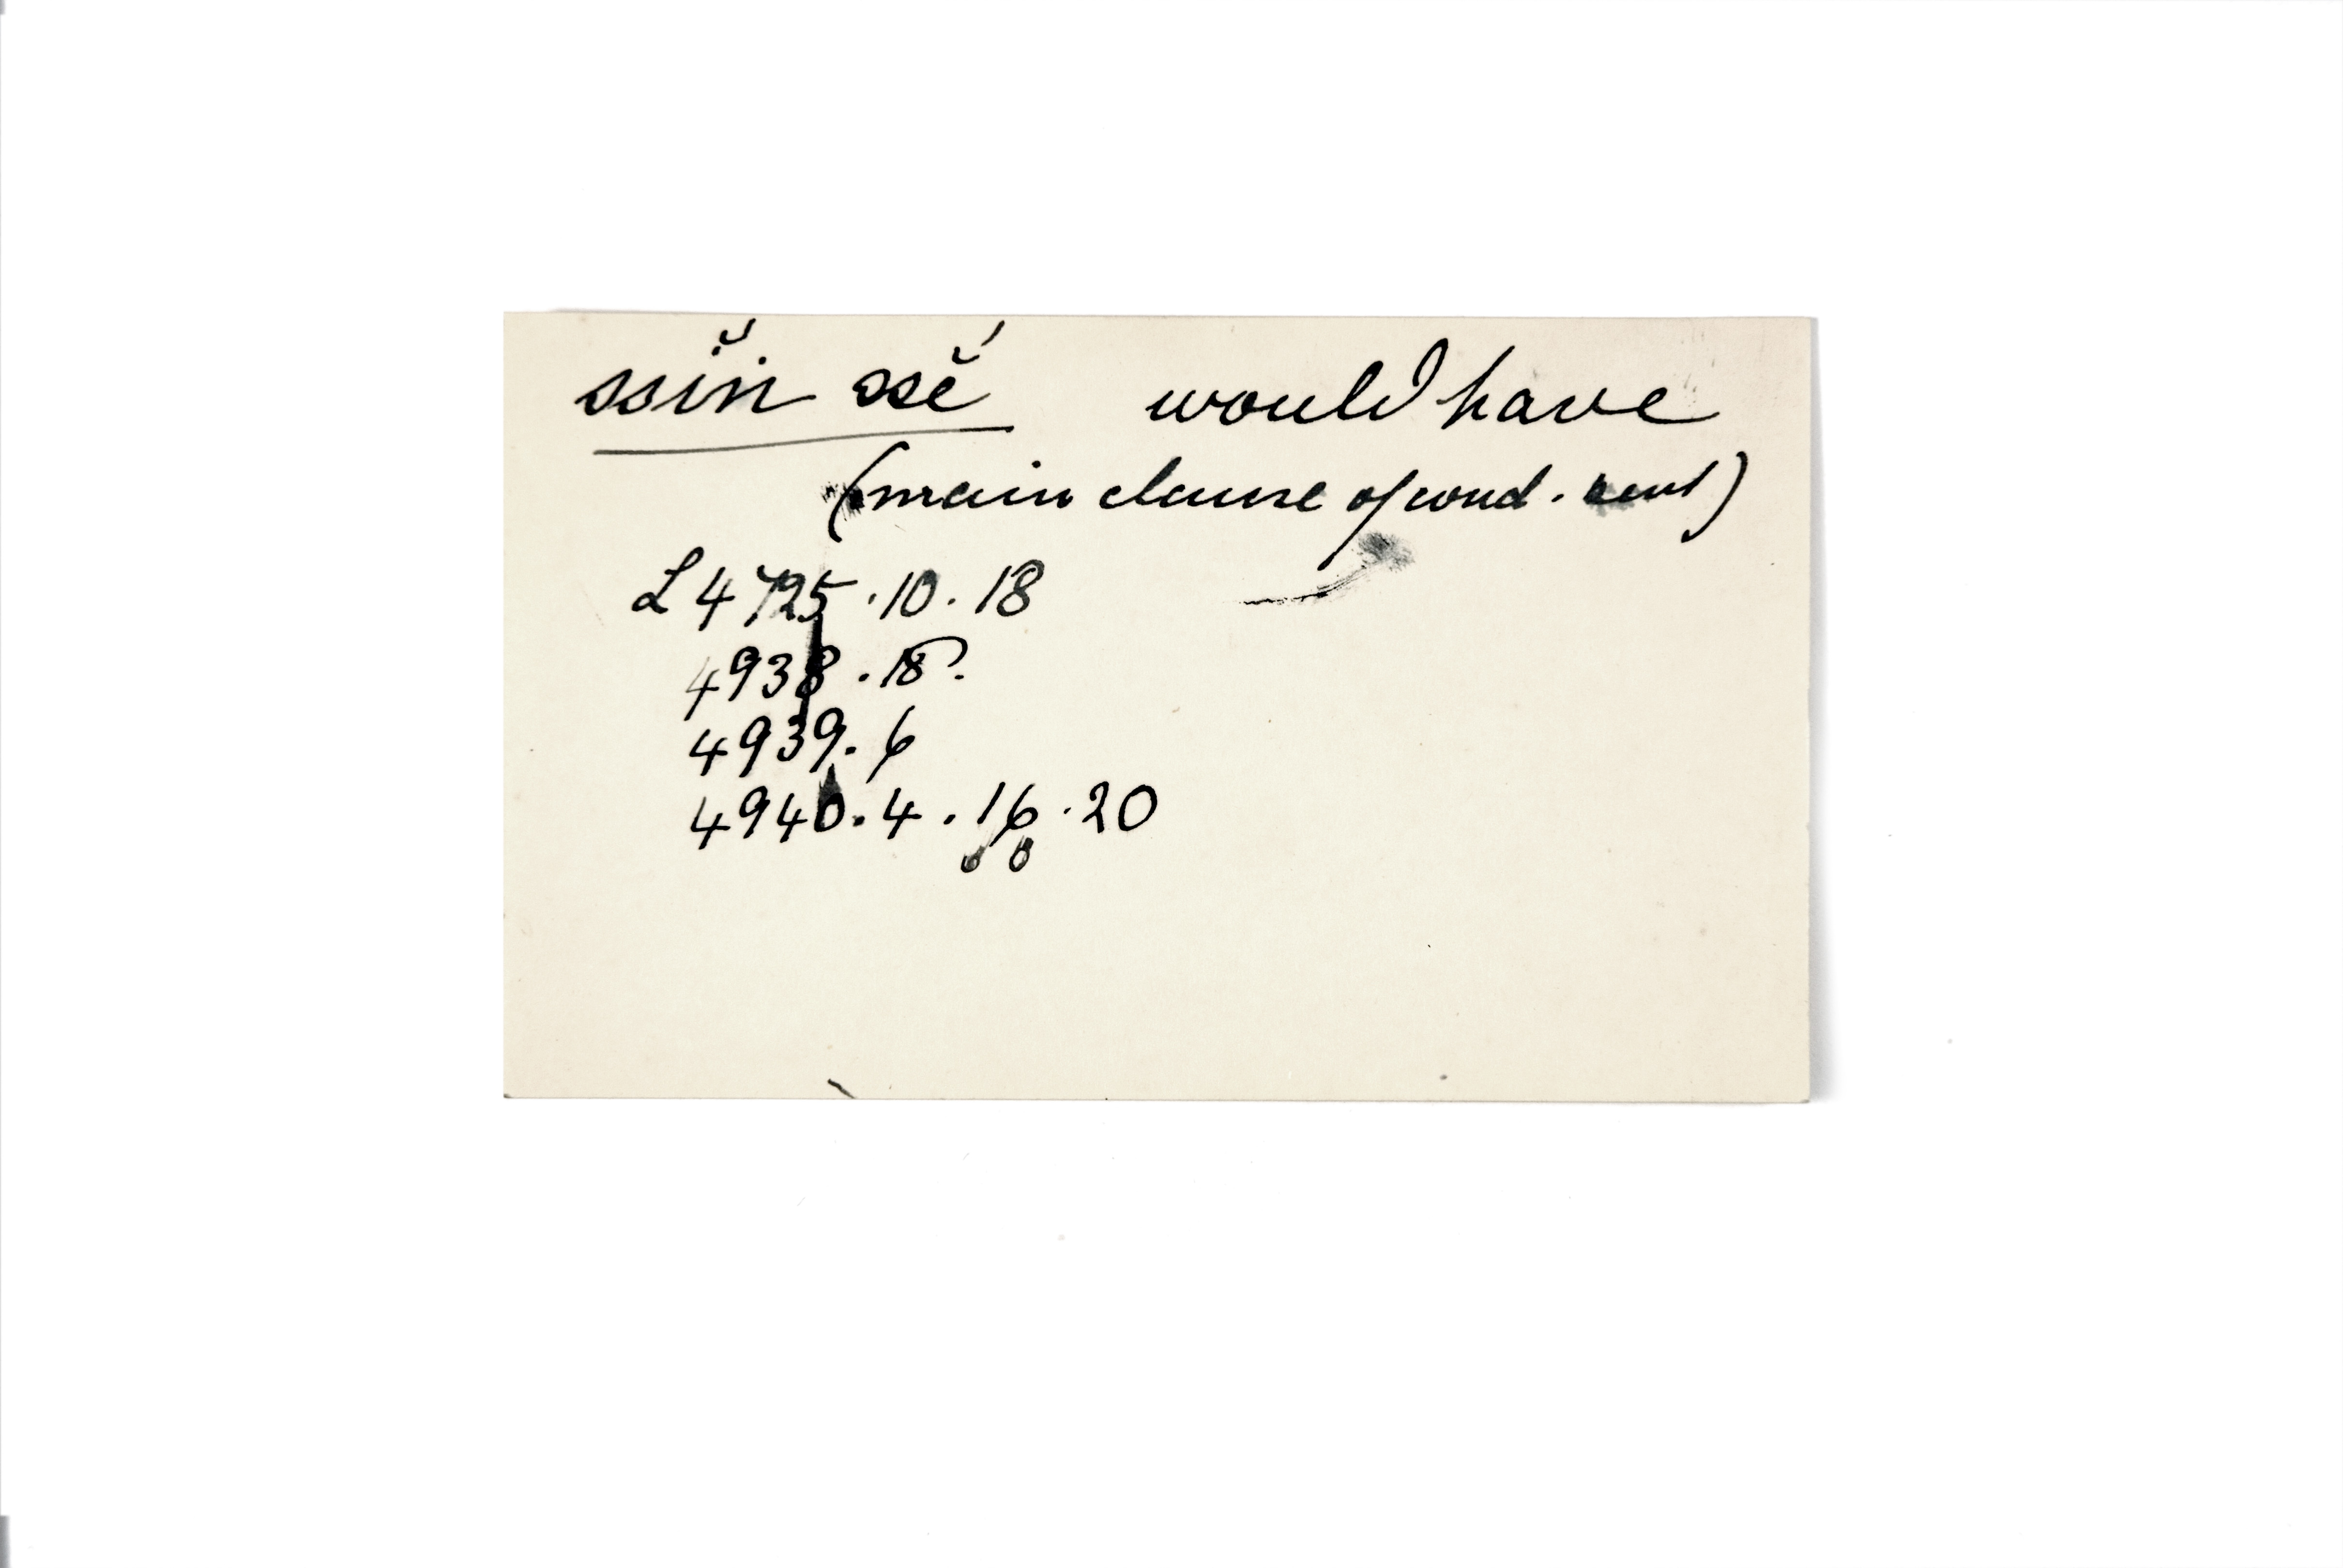 ssĭn ssĕ́ would have
(main clause of cond. sent)
L 4725.10.18
4938.18.
4939.6
4940.4.16.20